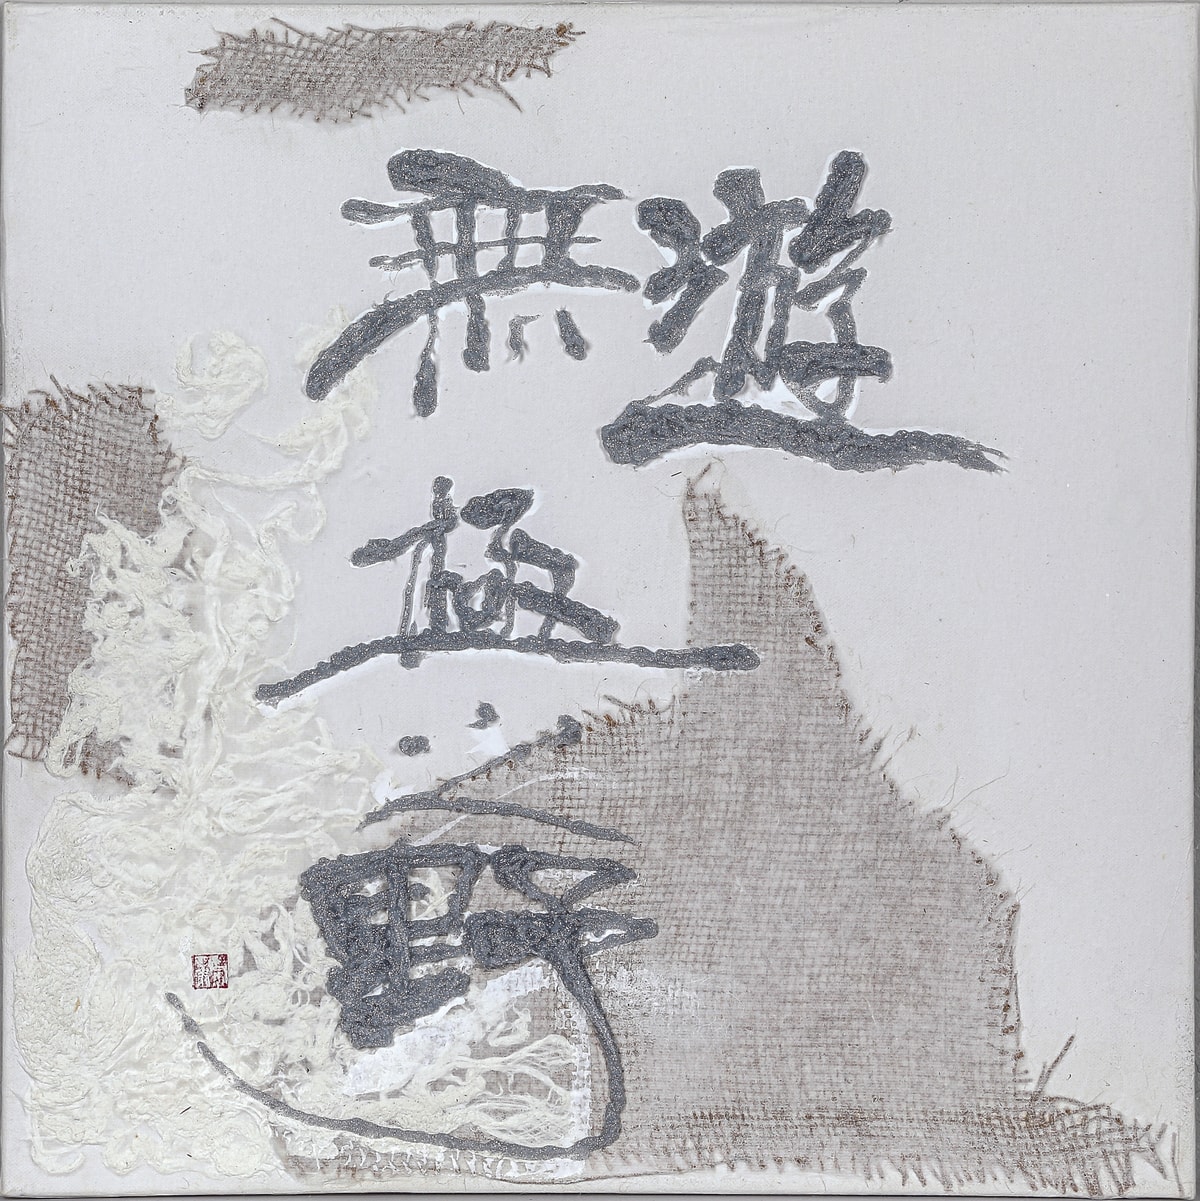 遊
無極之野